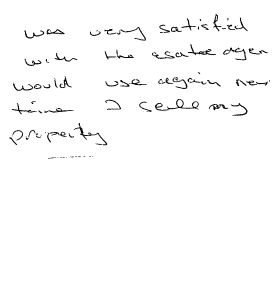 was very satisfied
with the esatee agen
would use again nex
time I sell my
property